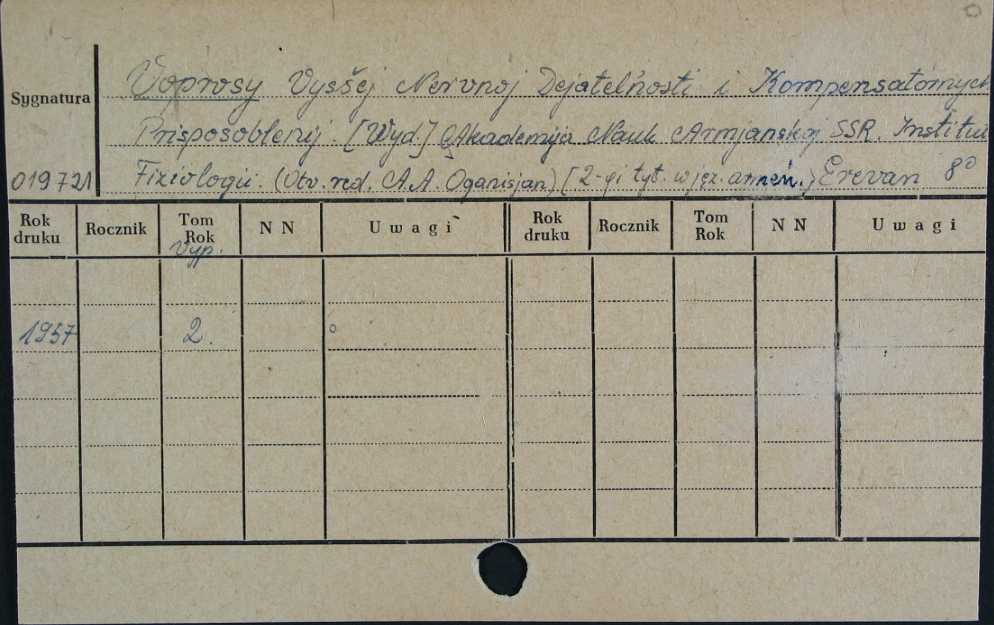 Voprosy Vysšej Nervnoj Dejatel'nosti i Kompensatornych
Prisposoblenij. [Wyd.] Akademija Nauk Armjanskoj SSR. Institut
Fiziologii. (Otv. red. A.A. Oganisjan) [2-gi tyt. w jęz. armeń.] Erevan 8°
Sygnatura
019721
Rok druku Rocznik Tom Rok N N Uwagi Rok druku Rocznik Tom Rok N N Uwagi
Vyp.
1957 2.